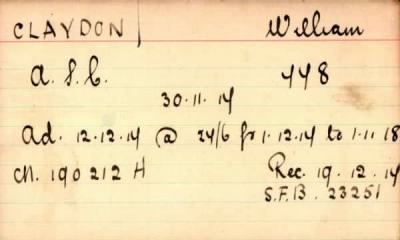 CLAYDON William
A.S.C. 448
30.11.17
Ad. 12.12.17 @ 27/6 fr 1.12.17 to 1.11.18
M. 190212 H Rec. 19.12.17
S.F.B. 23251